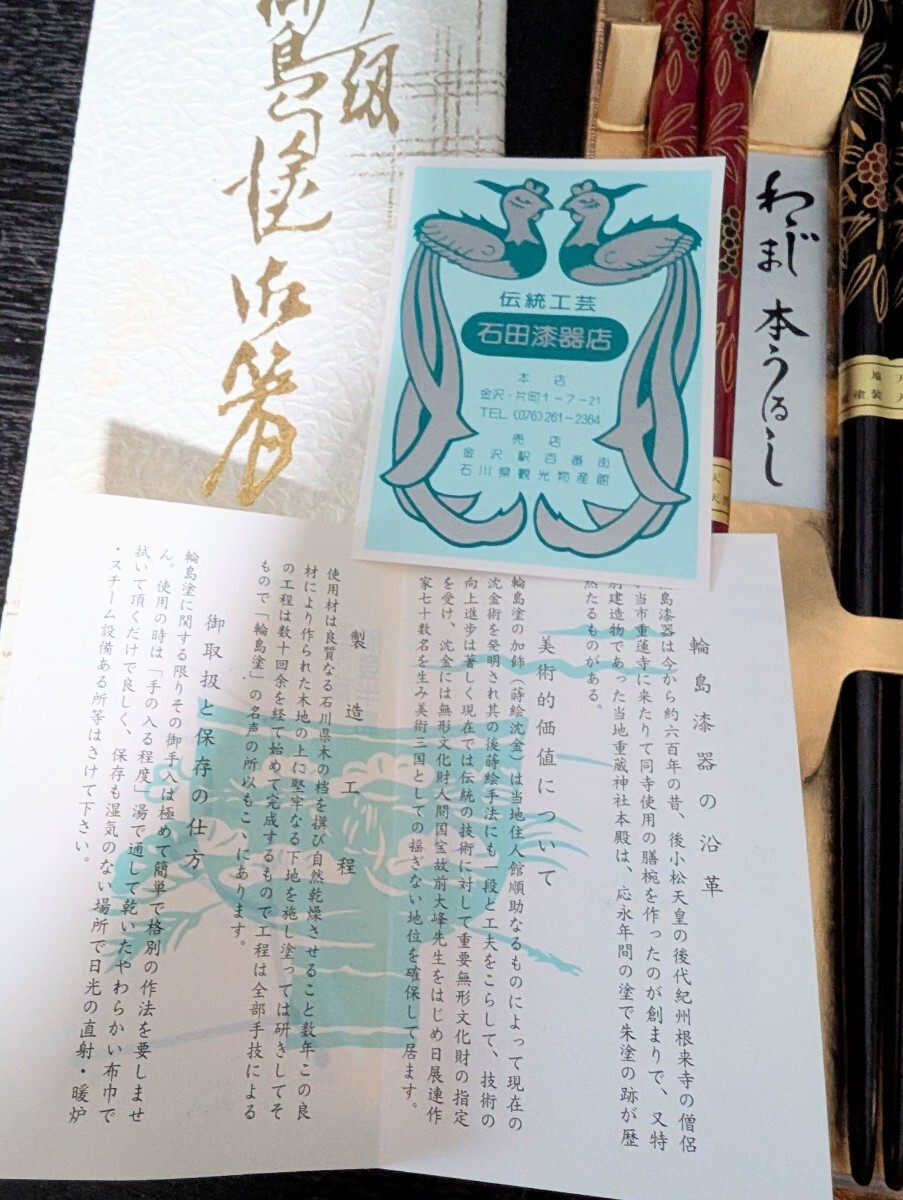 組
島塗御箸
伝統工芸
石田漆器店
本店
金沢・片町1-7-21
TEL (076)261-2364
売店
金沢駅百番街
石川県観光物産館
わじま
本うるし
輪島漆器の沿革
島漆器は今から約六百年の昔、後小松天皇の後代紀州根来寺の僧侶
当市重蓮寺に来たりて同寺使用の膳椀を作ったのが創まりで、又特
別建造物であった当地重蔵神社本殿は、応永年間の塗で朱塗の跡が歴
然たるものがある。
美術的価値について
輪島塗の加飾（蒔絵沈金）は当地住人館順助なるものによって現在の
沈金術を発明され其の後蒔絵手法にも一段と工夫をこらして、技術の
向上進歩は著しく現在では伝統の技術に対して重要無形文化財の指定
を受け、沈金には無形文化財人間国宝故前大峰先生をはじめ日展連作
家七十数名を生み美術三国としての揺ぎない地位を確保して居ます。
製造工程
使用材は良質なる石川県木の档を撰び自然乾燥させること数年この良
材により作られた木地の上に堅牢なる下地を施し塗っては研きしてそ
の工程は数十回余を経て始めて完成するもので工程は全部手技による
もので「輪島塗」の名声の所以もこゝにあります。
御取扱と保存の仕方
輪島塗に関する限りその御手入は極めて簡単で格別の作法を要しませ
ん。使用の時は「手の入る程度」湯で通して乾いたやわらかい布巾で
拭いて頂くだけで良しく、保存も湿気のない場所で日光の直射・暖炉
・スチーム設備ある所等はさけて下さい。